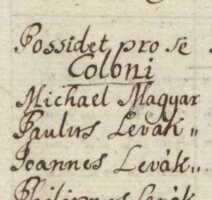 Possidet pro se
Coloni
Michael Magyar
Paulus Levák „
Joannes Levák „